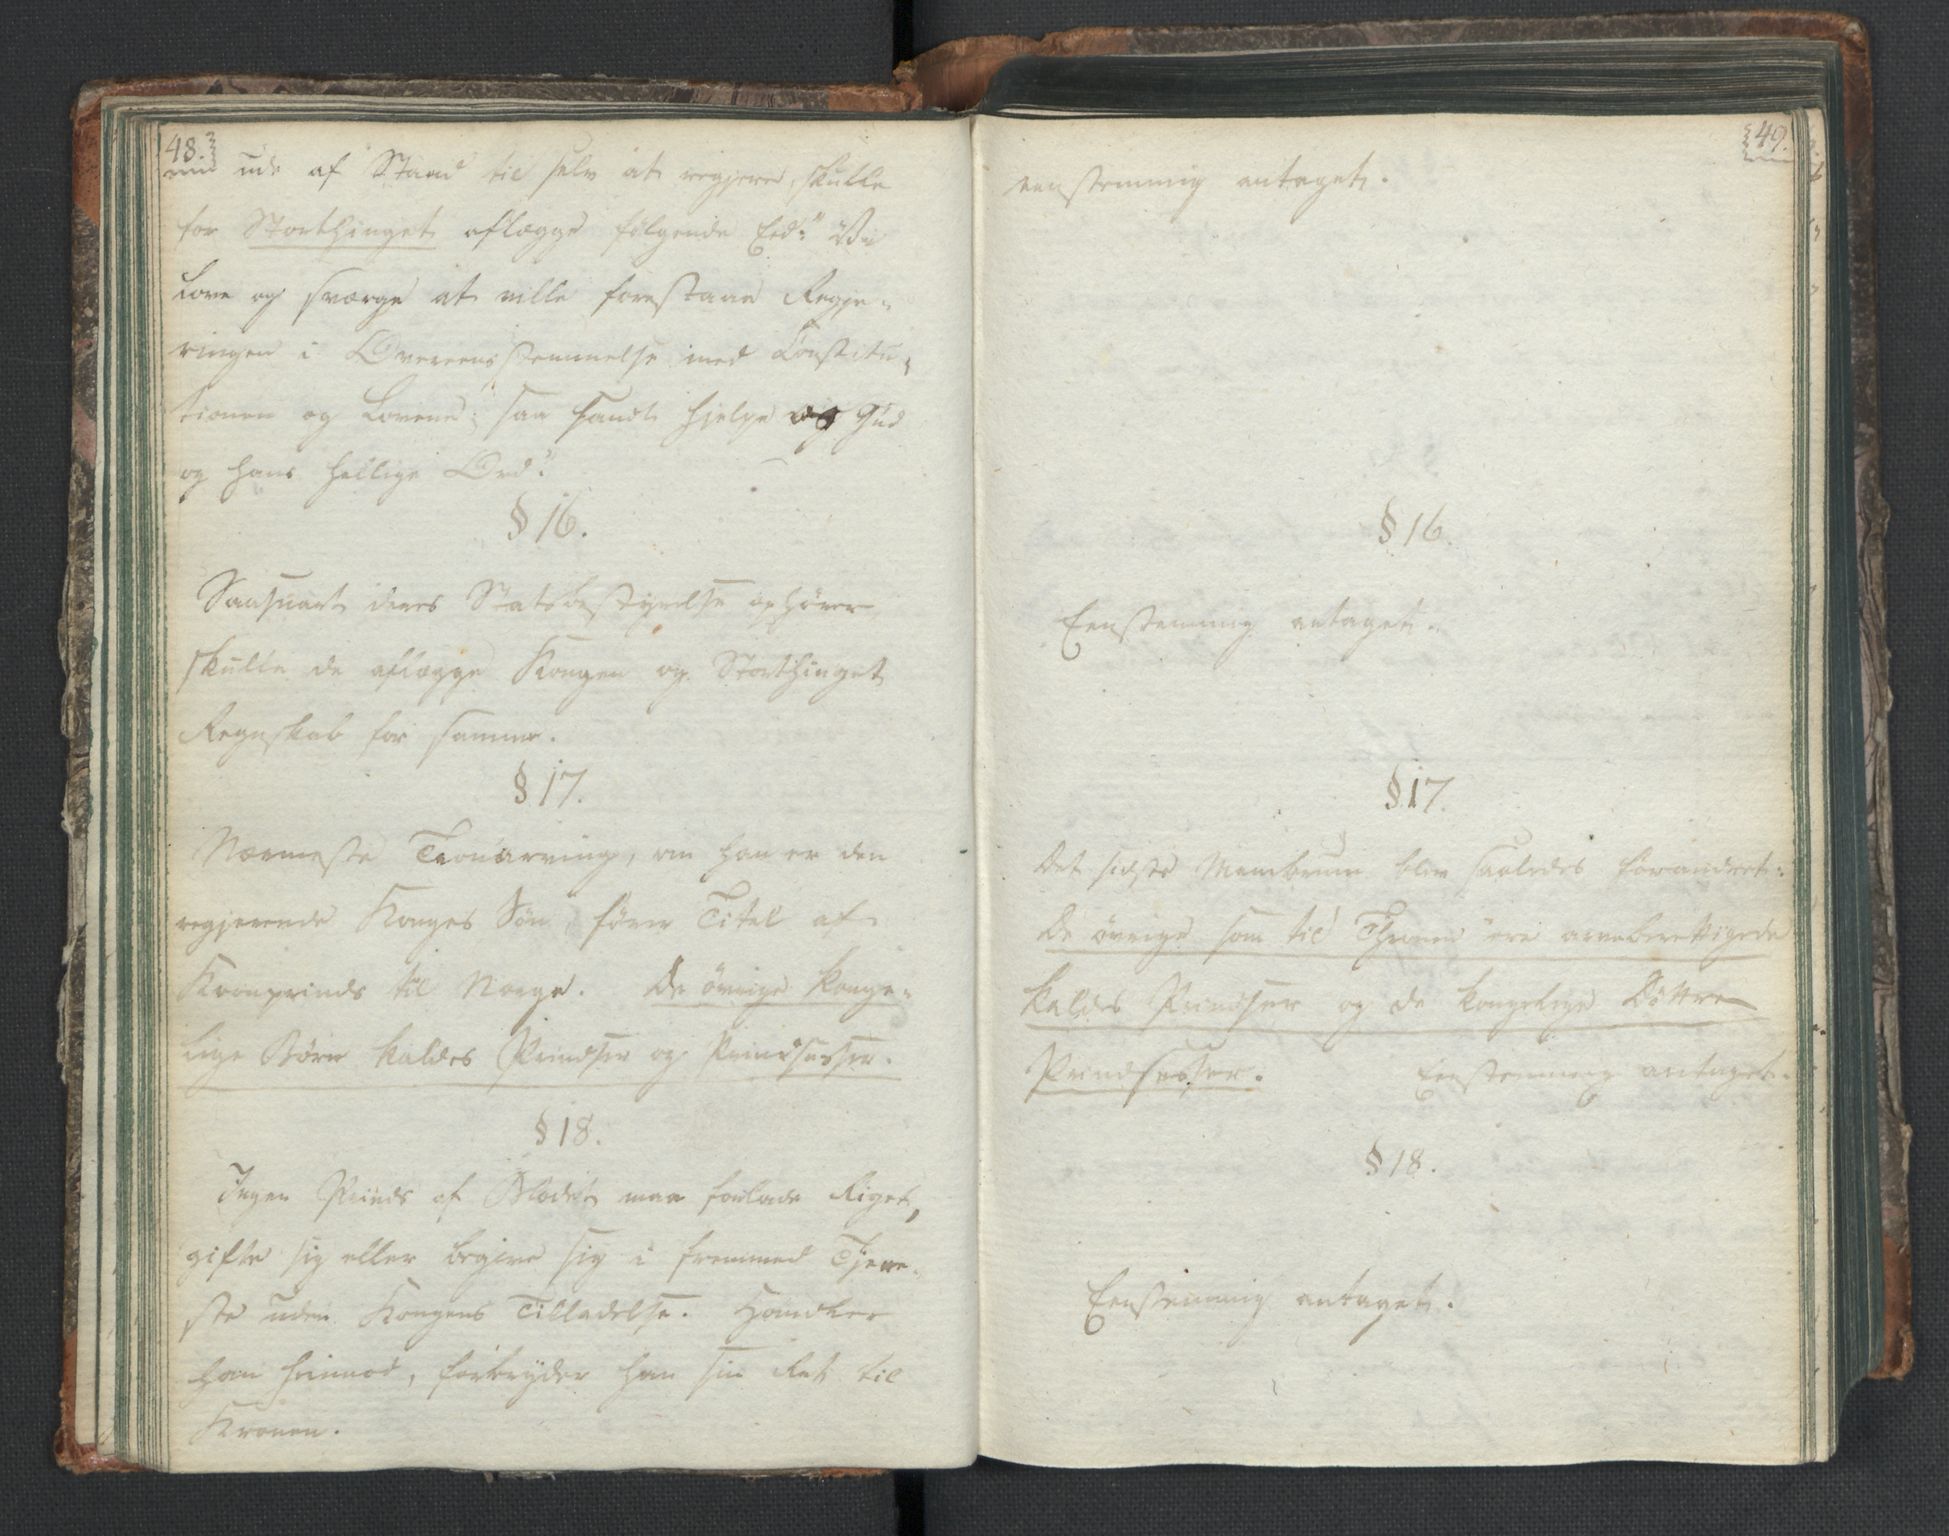 48.
ude af Stand til selv at regjere, skulle
for Storthinget aflægge følgende Eed: "Vi
Love og sværge at ville forestaae Regje-
ringen i Overeensstemmelse med Constitu-
tionen og Lovene; saa sandt hjelpe os Gud
og hans hellige Ord."
§ 16.
Saasnart deres Statsbestyrelse ophører
skulle de aflægge Kongen og Storthinget
Regnskab for samme.
§ 17.
Nærmeste Tronarving, om han er den
regjerende Konges Søn, fører Titel af
Kronprinds til Norge. De øvrige konge-
lige Børn kaldes Prindser og Prindsesser.
§ 18.
Ingen Prinds af Blodet maa forlade Riget,
gifte sig eller begive sig i fremmed Tjene-
ste uden Kongens Tilladelse. Handler
han herimod, forbryder han sin Ret til
Kronen.
49.
eenstemmig antaget.
§ 16.
Eenstemmig antaget.
§ 17.
Det sidste Membrum blev saaledes forandret:
De øvrige som til Thronen ere arveberettigede
kaldes Prindser og de kongelige Døttre
Prindsesser. Eenstemmig antaget.
§ 18.
Eenstemmig antaget.